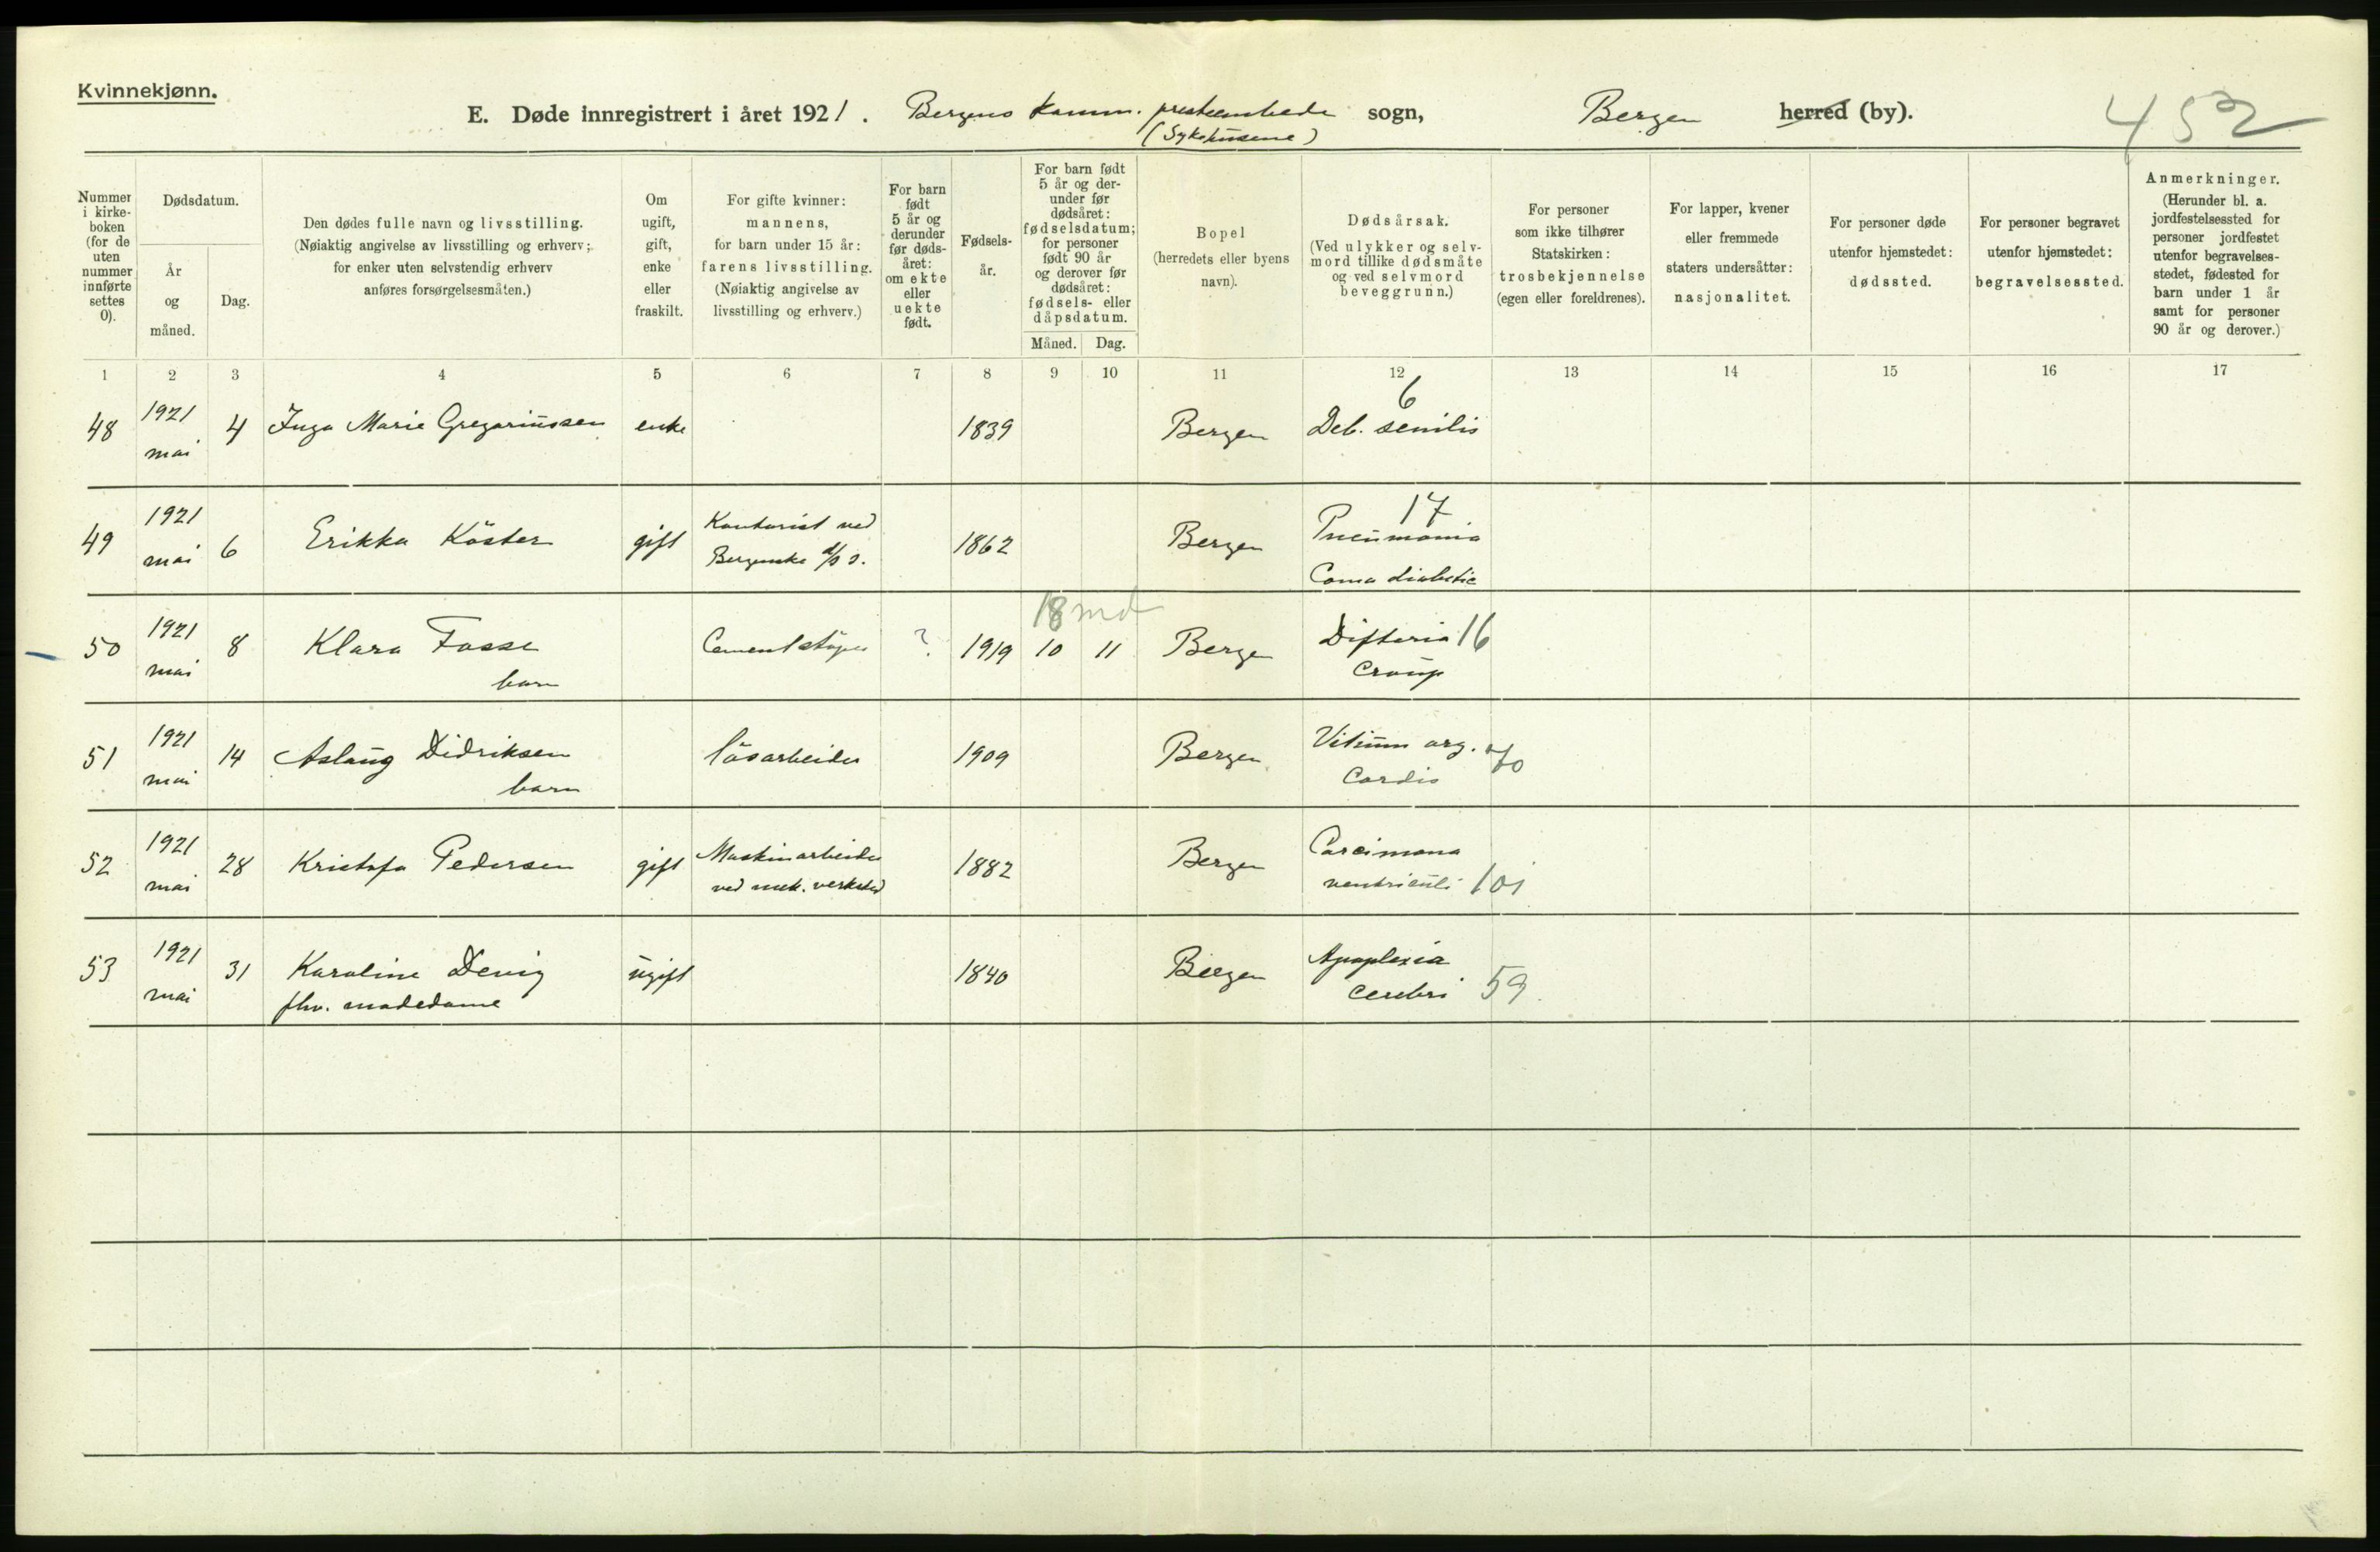 Kvinnekjønn.
E. Døde innregistrert i året 1921. Bergens komm. presteembede sogn, Bergen herred (by). 452
(Sykehusene)
Nummer i kirke-boken (for de uten nummer innførte settes 0).
Dødsdatum.
År og måned.
Dag.
Den dødes fulle navn og livsstilling.
(Nøiaktig angivelse av livsstilling og erhverv;
for enker uten selvstendig erhverv
anføres forsørgelsesmåten.)
Om ugift, gift, enke eller fraskilt.
For gifte kvinner:
mannens,
for barn under 15 år:
farens livsstilling.
(Nøiaktig angivelse av
livsstilling og erhverv.)
For barn født 5 år og derunder før døds-året: om ekte eller uekte født.
Fødsels-år.
For barn født 5 år og der-under før dødsåret: fødselsdatum; for personer født 90 år og derover før dødsåret: fødsels- eller dåpsdatum.
Måned. Dag.
Bopel
(herredets eller byens
navn).
Dødsårsak.
(Ved ulykker og selv-
mord tillike dødsmåte
og ved selvmord
beveggrunn.)
For personer
som ikke tilhører
Statskirken:
trosbekjennelse
(egen eller foreldrenes).
For lapper, kvener
eller fremmede
staters undersåtter:
nasjonalitet.
For personer døde
utenfor hjemstedet:
dødssted.
For personer begravet
utenfor hjemstedet:
begravelsessted.
Anmerkninger.
(Herunder bl. a.
jordfestelsessted for
personer jordfestet
utenfor begravelses-
stedet, fødested for
barn under 1 år
samt for personer
90 år og derover.)
1 2 3 4 5 6 7 8 9 10 11 12 13 14 15 16 17
6
48 1921 mai 4 Inga Marie Gregariussen enke 1839 Bergen Deb. senilis
17
49 1921 mai 6 Erikka Köster gift Kontorist ved Bergenske d/s s. 1862 Bergen Pneumonia
Coma diabetic
18 md
50 1921 mai 8 Klara Fosse Cementstöper ? 1919 10 11 Bergen Difteria 16
barn Croup
51 1921 mai 14 Aslaug Didriksen lösarbeider 1909 Bergen Vitium org. 70
barn Cordis
52 1921 mai 28 Kristofa Pedersen gift Maskinarbeider 1882 Bergen Carcinoma
ved mek. verksted ventriculi 101
53 1921 mai 31 Karoline ugift 1840 Bergen Apoplexia
fhv. motedame cerebri 59